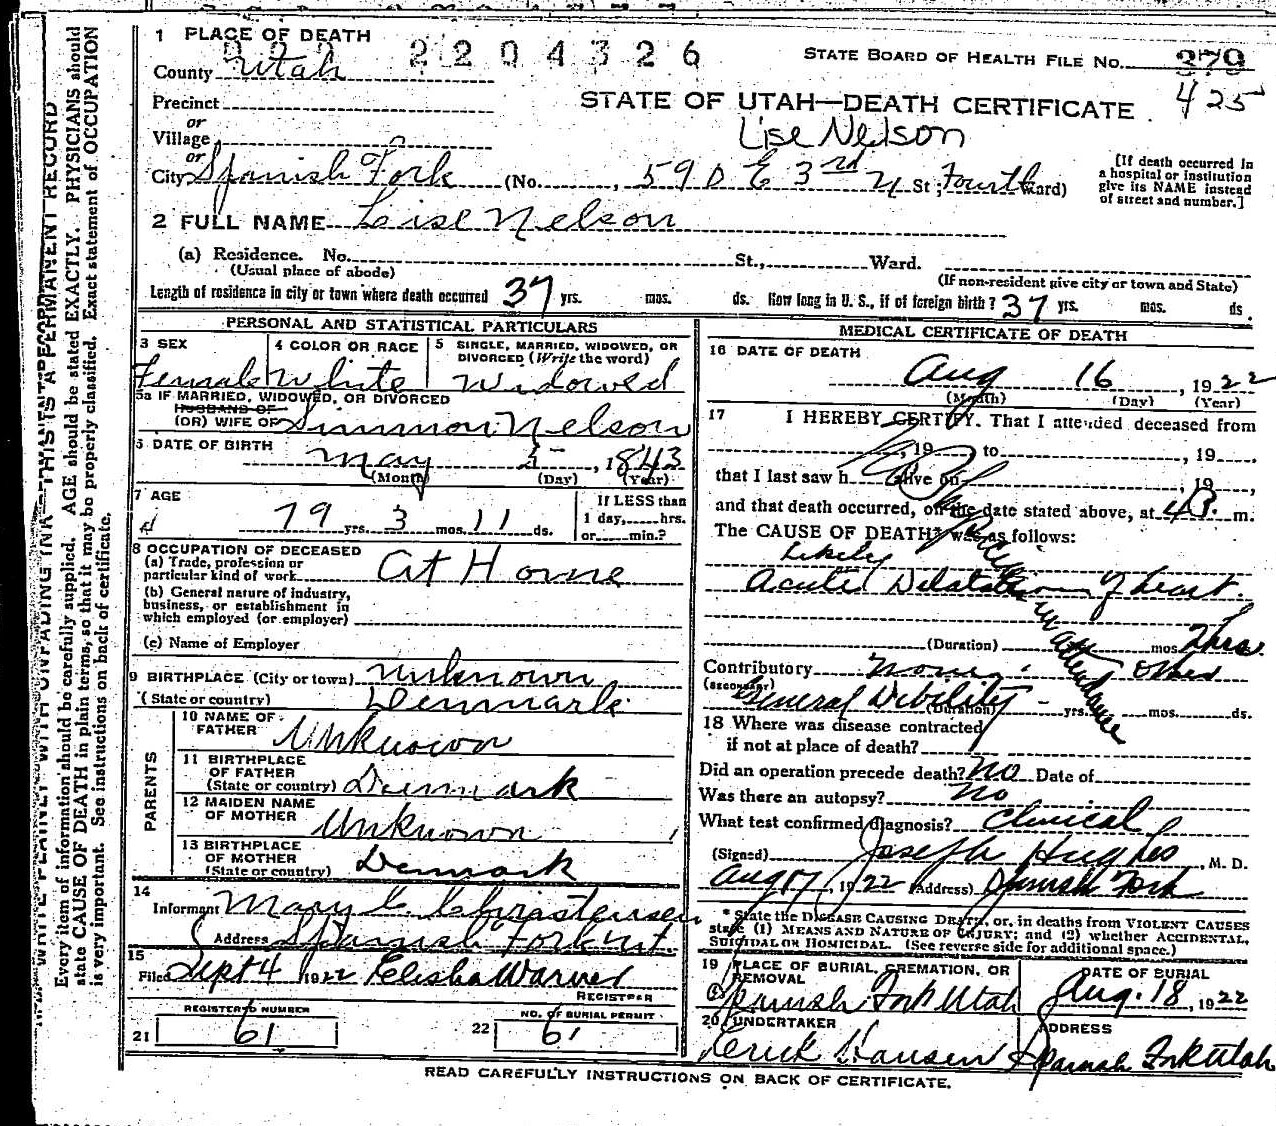 1 PLACE OF DEATH
2204326
STATE BOARD OF HEALTH FILE No. 379
County Utah
425
Precinct
STATE OF UTAH—DEATH CERTIFICATE
or
Village
Lise Nelson
or
City Spanish Fork (No. , 590 E 3rd N St ; Fourth Ward)
[If death occurred in
a hospital or institution
give its NAME instead
of street and number.]
2 FULL NAME Leise Nelson
(a) Residence. No. St., Ward.
(Usual place of abode) (If non-resident give city or town and State)
Length of residence in city or town where death occurred 37 yrs. mos. ds. How long in U. S., if of foreign birth? 37 yrs. mos. ds.
PERSONAL AND STATISTICAL PARTICULARS
3 SEX
Female
4 COLOR OR RACE
White
5 SINGLE, MARRIED, WIDOWED, OR
DIVORCED (Write the word)
Widowed
5a IF MARRIED, WIDOWED, OR DIVORCED
HUSBAND OF
(OR) WIFE OF Simmon Nelson
6 DATE OF BIRTH
May 5, 1843
(Month) (Day) (Year)
7 AGE
79 yrs. 3 mos. 11 ds.
If LESS than
1 day, hrs.
or min.?
8 OCCUPATION OF DECEASED
(a) Trade, profession or
particular kind of work At Home
(b) General nature of industry,
business, or establishment in
which employed (or employer)
(c) Name of Employer
9 BIRTHPLACE (City or town) Unknown
(State or country) Denmark
PARENTS
10 NAME OF
FATHER Unknown
11 BIRTHPLACE
OF FATHER
(State or country) Denmark
12 MAIDEN NAME
OF MOTHER Unknown
13 BIRTHPLACE
OF MOTHER
(State or country) Denmark
14
Informant Mary C. Christensen
Address Spanish Fork Ut.
15
Filed Sept 4 1922 Elisha Warner
REGISTRAR
REGISTERED NUMBER
21 61
NO. OF BURIAL PERMIT
22 61
MEDICAL CERTIFICATE OF DEATH
16 DATE OF DEATH
Aug 16, 1922
(Month) (Day) (Year)
17 I HEREBY CERTIFY. That I attended deceased from
, 19 to , 19 ,
that I last saw h alive on , 19 ,
and that death occurred, on the date stated above, at m.
The CAUSE OF DEATH* was as follows:
Likely
Acute Dilatation of heart.
No Physician in attendance
(Duration) mos 2 hrs.
Contributory none; other
(secondary) General Debility (Duration) yrs. mos. ds.
18 Where was disease contracted
if not at place of death?
Did an operation precede death? No Date of
Was there an autopsy? No
What test confirmed diagnosis? Clinical
(Signed) Joseph Hughes, M. D.
Aug 17, 1922 (Address) Spanish Fork
* State the DISEASE CAUSING DEATH, or, in deaths from VIOLENT CAUSES
state (1) MEANS AND NATURE OF INJURY; and (2) whether ACCIDENTAL,
SUICIDAL OR HOMICIDAL. (See reverse side for additional space.)
19 PLACE OF BURIAL, CREMATION, OR
REMOVAL
Spanish Fork Utah
DATE OF BURIAL
Aug. 18, 1922
20 UNDERTAKER
Hansen
ADDRESS
Spanish Fork Utah
READ CAREFULLY INSTRUCTIONS ON BACK OF CERTIFICATE.
WRITE PLAINLY WITH UNFADING INK—THIS IS A PERMANENT RECORD
Every item of information should be carefully supplied. AGE should be stated EXACTLY. PHYSICIANS should
state CAUSE OF DEATH in plain terms, so that it may be properly classified. Exact statement of OCCUPATION
is very important. See instructions on back of certificate.